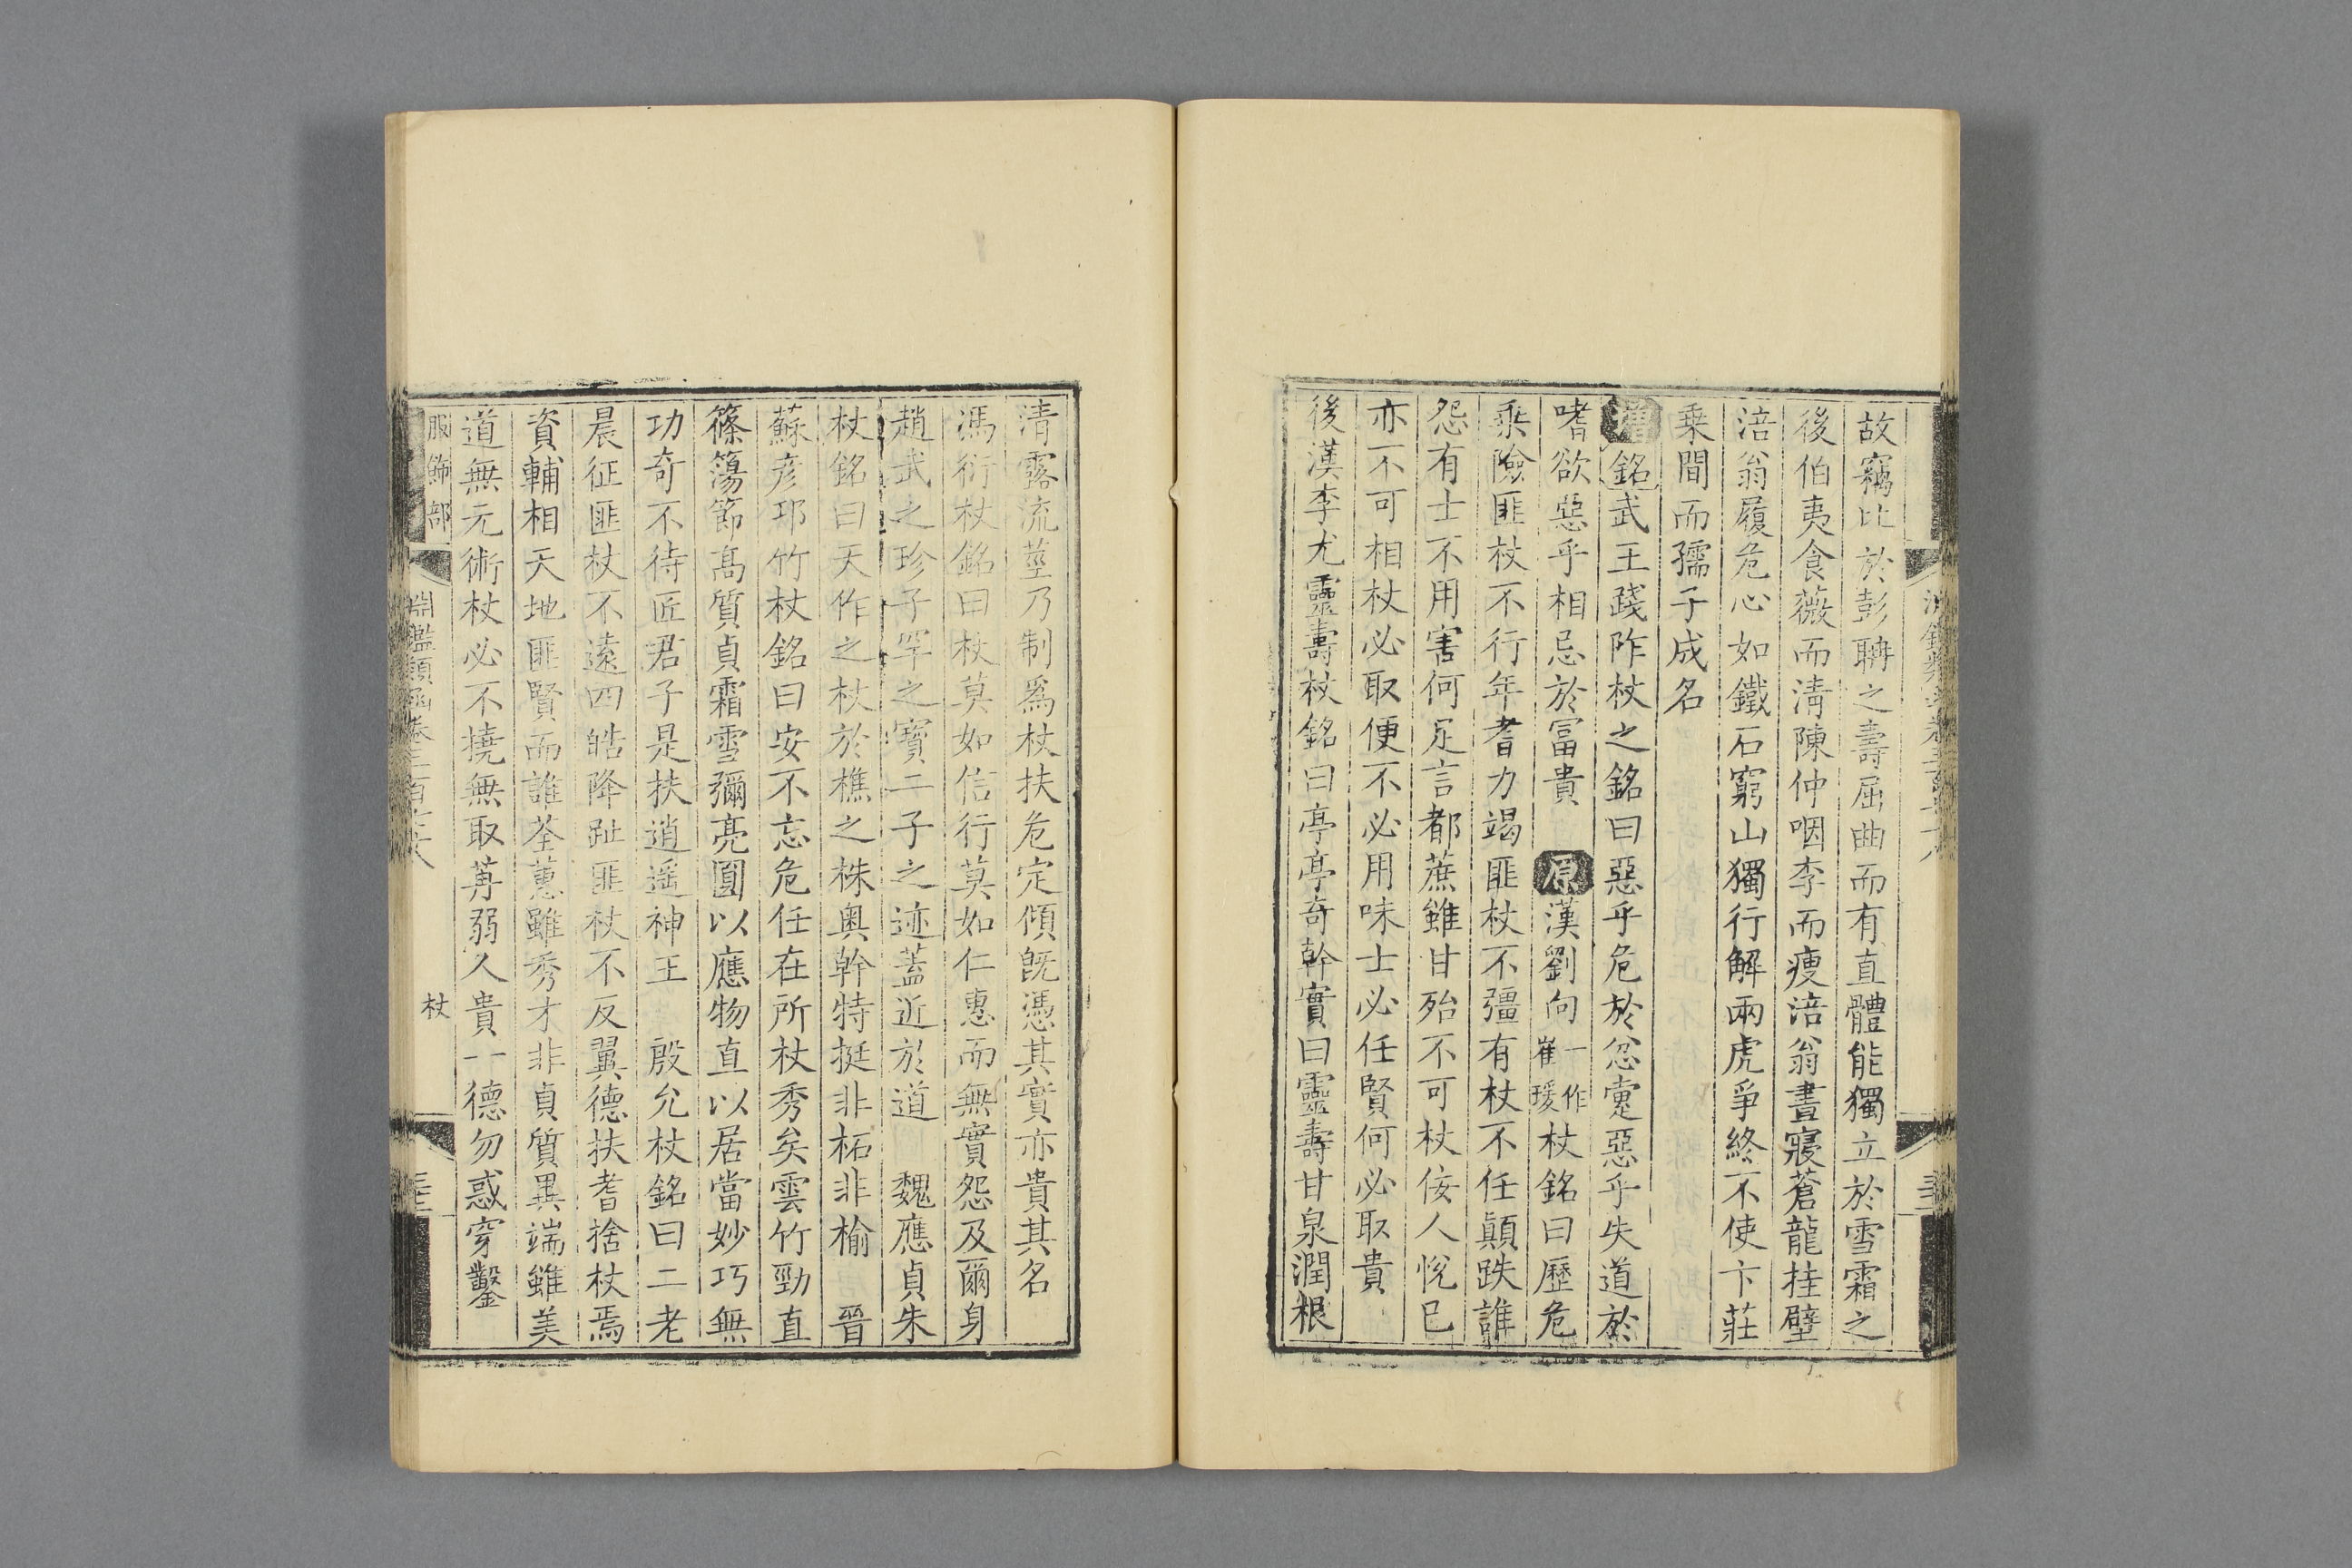 故竊比於彭聃之壽屈曲而有直體能獨立於雪霜之
後伯夷食薇而淸陳仲咽李而瘦涪翁晝寢蒼龍挂壁
涪翁履危心如鐵石窮山獨行解兩虎爭終不使卞莊
乗間而孺子成名
增銘武王踐阼杖之銘曰惡乎危於忿疐惡乎失道於
嗜欲惡乎相忌於富貴 原漢劉向一作崔瑗杖銘曰歷危
乘險匪杖不行年耆力竭匪杖不彊有杖不任顛跌誰
怨有士不用害何足言都蔗雖甘殆不可杖佞人悅己
亦不可相杖必取便不必用味士必任賢何必取貴
後漢李尤靈壽杖銘曰亭亭奇幹實曰靈壽甘泉潤根
清露流莖乃制爲杖扶危定傾旣憑其實亦貴其名
馮衍杖銘曰杖莫如信行莫如仁惠而無實怨及爾身
趙武之珍子罕之寶二子之迹蓋近於道 魏應貞朱
杖銘曰天作之杖於樵之株奥幹特挺非柘非榆 晉
蘇彦邛竹杖銘曰安不忘危任在所杖秀矣雲竹勁直
篠簜節高質貞霜雪彌亮圓以應物直以居當妙巧無
功奇不待匠君子是扶逍遥神王 殷允杖銘曰二老
晨征匪杖不遠四皓降趾匪杖不反翼德扶耆捨杖焉
資輔相天地匪賢而誰荃蕙雖秀才非貞質異端雖美
道無元術杖必不撓無取苒弱人貴一德勿惑穿鑿
服飾部 淵鑑類函卷三百七十八 杖